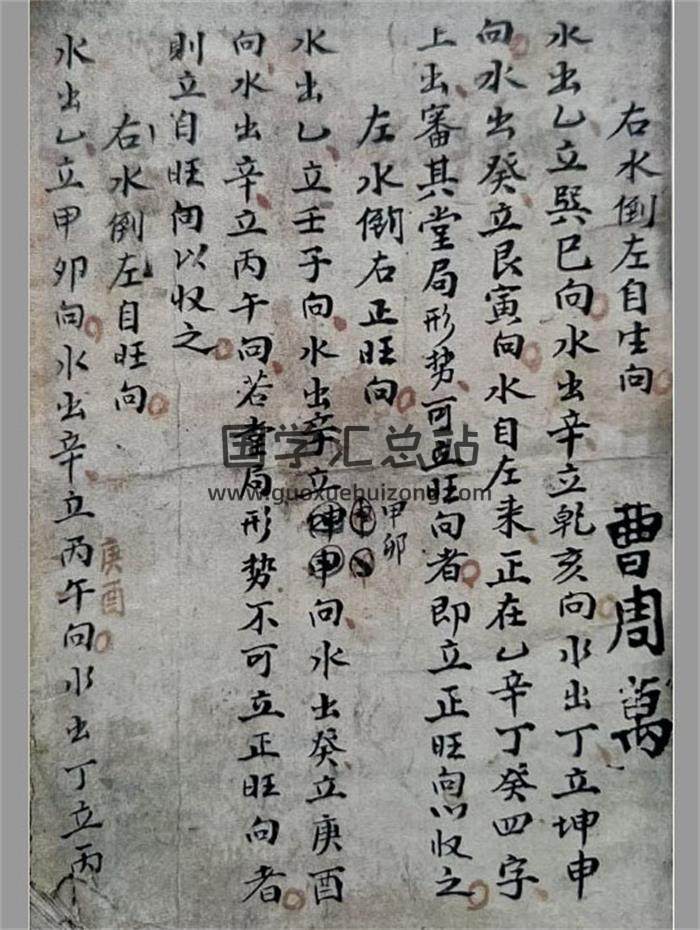 右水倒左自生向
曹周萬
水出乙立巽巳向水出辛立乾亥向水出丁立坤申
向水出癸立艮寅向水自左来正在乙辛丁癸四字
上出審其堂局形势可立旺向者即立正旺向以收之
左水倒右正旺向
甲卯
水出乙立壬子向水出辛立坤申向水出癸立庚酉
向水出辛立丙午向若局形势不可立正旺向者
則立自旺向以收之
右水倒左自旺向
庚酉
水出乙立甲卯向水出辛立丙午向水出丁立丙
国学汇总站
www.guoxuehuizong.com